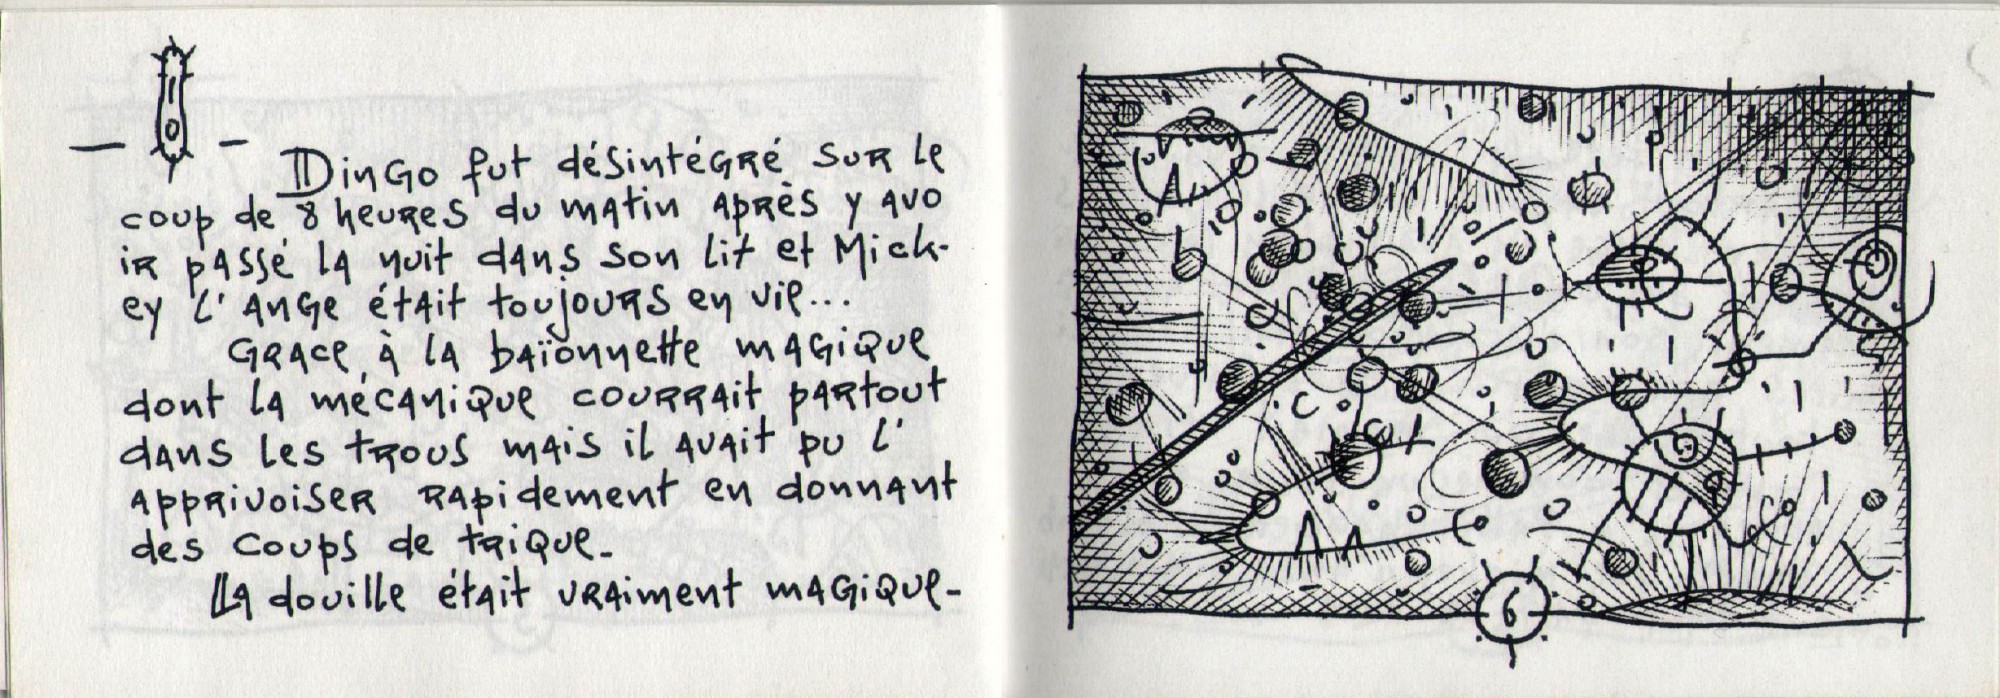 Dingo fut désintégré sur le
coup de 8 heures du matin après y avo
ir passé la nuit dans son lit et Mick-
ey l'Ange était toujours en vie...
Grace à la baïonnette magique
dont la mécanique courrait partout
dans les trous mais il avait pu l'
apprivoiser rapidement en donnant
des coups de trique.
La douille était vraiment magique.
6